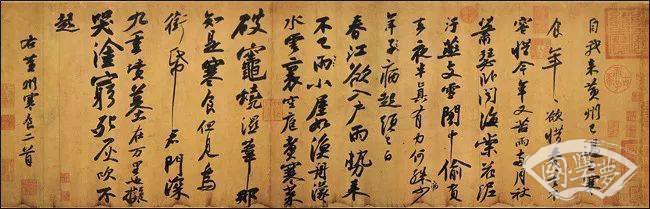 自我來黃州已過三寒
食年年欲惜春春去不
容惜今年又苦雨兩月秋
蕭瑟臥聞海棠花泥
汙燕支雪闇中偷負
去夜半真有力何殊少
年子病起頭已白
春江欲入戶雨勢來
不已雨小屋如漁舟濛濛
水雲裏空庖煮寒菜
破竈燒濕葦那
知是寒食但見烏
銜帋君門深
九重墳墓在万里也擬
哭塗窮死灰吹不
起
右黃州寒食二首
國學夢